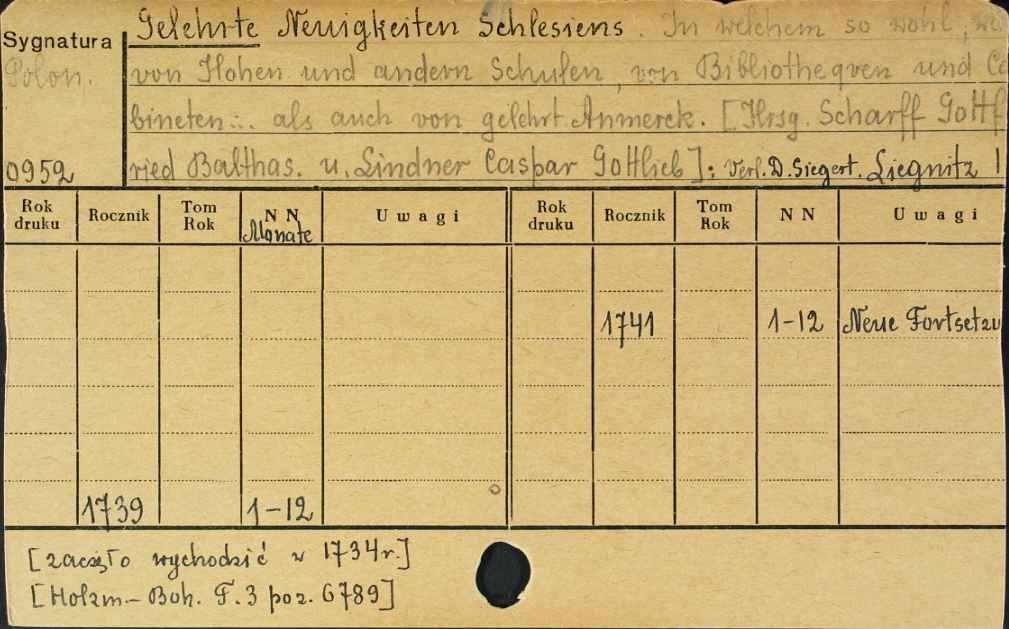 Gelehrte Neuigkeiten Schlesiens. In welchem so wohl,
Sygnatura
Polon.
von Hohen und andern Schulen, von Bibliotheqven und Ca
bineten... als auch von gelehrt. Anmerck. [Hrsg. Scharff Gottf
0952
ried Balthas. u. Lindner Caspar Gottlieb]: Verl. D. Siegert. Liegnitz
Rok druku Rocznik Tom Rok N N Monate Uwagi Rok druku Rocznik Tom Rok N N Uwagi
1741 1-12 Neue Fortsetzu
1739 1-12
[zaczęło wychodzić w 1734r.]
[Holzm.-Boh. F.3 poz. 6789]